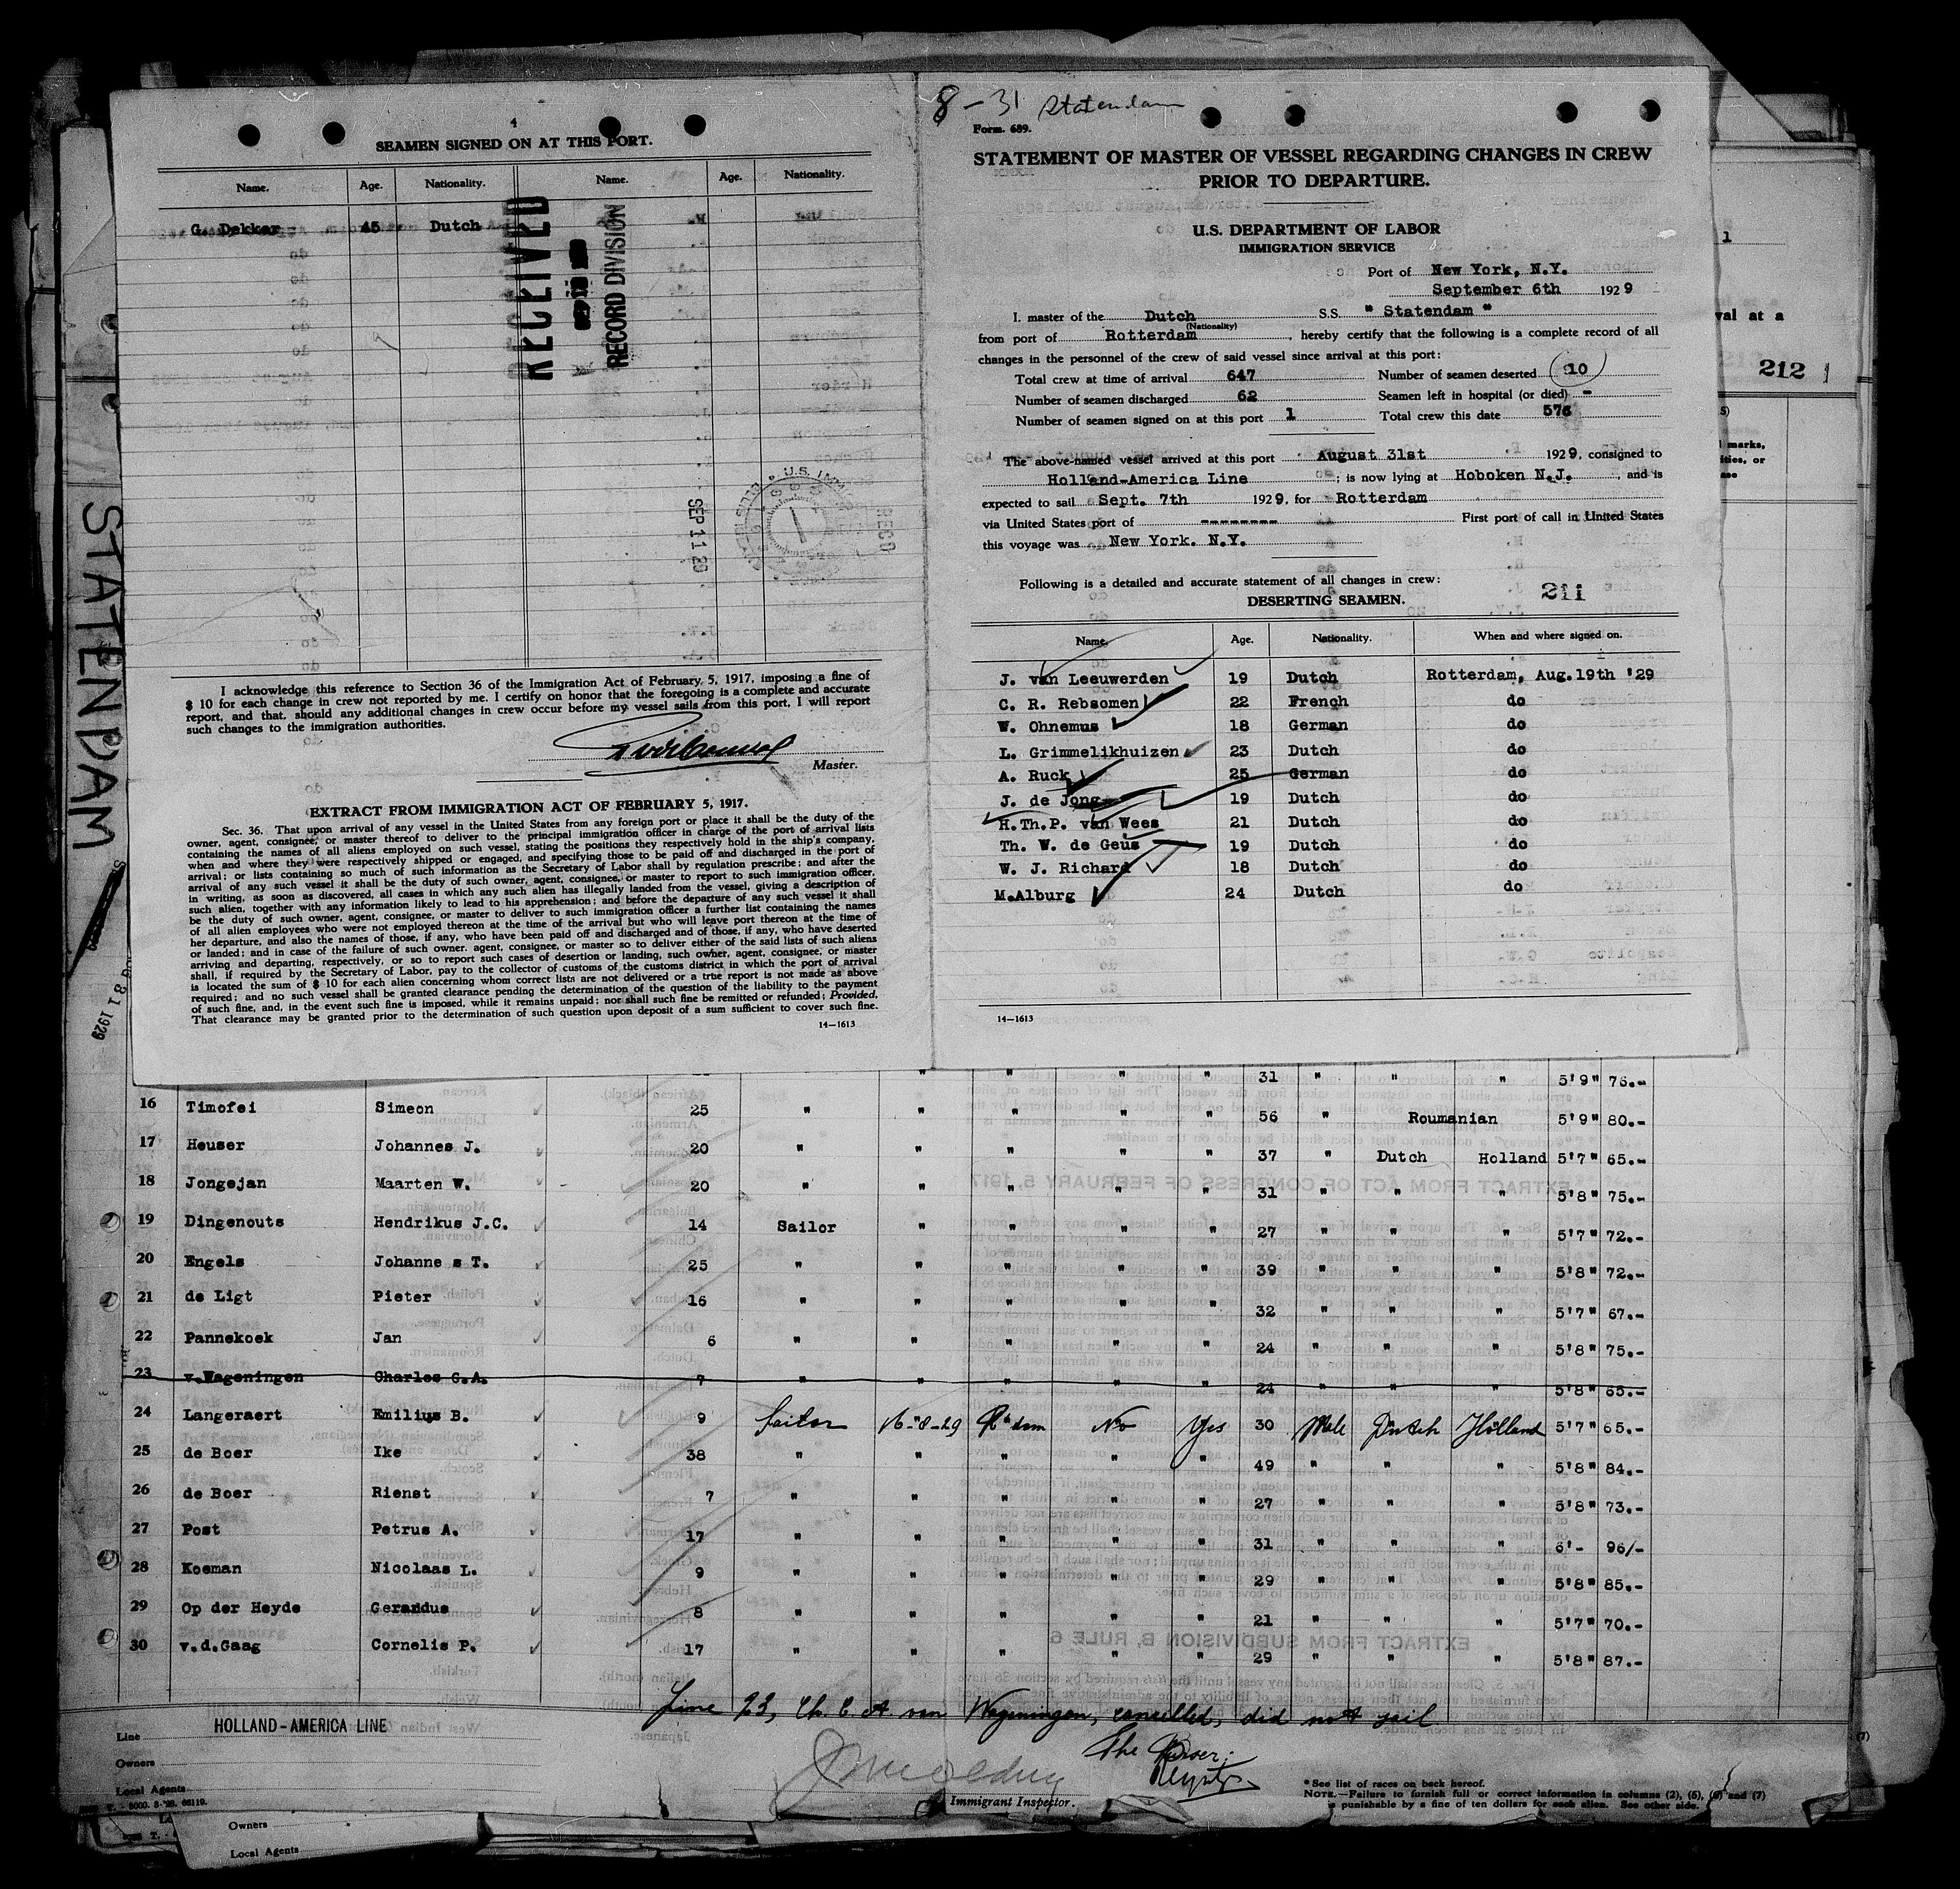 4
SEAMEN SIGNED ON AT THIS PORT.
Name. Age. Nationality. Name. Age. Nationality.
G. Dekker 45 Dutch
RECEIVED
RECORD DIVISION
SEP 11 29
RECD
I acknowledge this reference to Section 36 of the Immigration Act of February 5, 1917, imposing a fine of
$ 10 for each change in crew not reported by me. I certify on honor that the foregoing is a complete and accurate
report, and that, should any additional changes in crew occur before my vessel sails from this port, I will report
such changes to the immigration authorities.
Master.
EXTRACT FROM IMMIGRATION ACT OF FEBRUARY 5, 1917.
Sec. 36. That upon arrival of any vessel in the United States from any foreign port or place it shall be the duty of the
owner, agent, consignee, or master thereof to deliver to the principal immigration officer in charge of the port of arrival lists
containing the names of all aliens employed on such vessel, stating the positions they respectively hold in the ship's company,
when and where they were respectively shipped or engaged, and specifying those to be paid off and discharged in the port of
arrival; or lists containing so much of such information as the Secretary of Labor shall by regulation prescribe; and after the
arrival of any such vessel it shall be the duty of such owner, agent, consignee, or master to report to such immigration officer,
in writing, as soon as discovered, all cases in which any such alien has illegally landed from the vessel, giving a description of
such alien, together with any information likely to lead to his apprehension; and before the departure of any such vessel it shall
be the duty of such owner, agent, consignee, or master to deliver to such immigration officer a further list containing the names
of all alien employees who were not employed thereon at the time of the arrival but who will leave port thereon at the time of
her departure, and also the names of those, if any, who have been paid off and discharged and of those, if any, who have deserted
or landed; and in case of the failure of such owner, agent, consignee, or master so to deliver either of the said lists of such aliens
arriving and departing, respectively, or so to report such cases of desertion or landing, such owner, agent, consignee, or master
shall, if required by the Secretary of Labor, pay to the collector of customs of the customs district in which the port of arrival
is located the sum of $ 10 for each alien concerning whom correct lists are not delivered or a true report is not made as above
required; and no such vessel shall be granted clearance pending the determination of the question of the liability to the payment
of such fine, and, in the event such fine is imposed, while it remains unpaid; nor shall such fine be remitted or refunded; Provided,
That clearance may be granted prior to the determination of such question upon deposit of a sum sufficient to cover such fine.
14—1613
8 - 31 Statendam
Form. 689.
STATEMENT OF MASTER OF VESSEL REGARDING CHANGES IN CREW
PRIOR TO DEPARTURE.
U.S. DEPARTMENT OF LABOR
IMMIGRATION SERVICE
Port of New York, N.Y.
September 6th 1929
I. master of the Dutch S.S. " Statendam "
(Nationality)
from port of Rotterdam, hereby certify that the following is a complete record of all
changes in the personnel of the crew of said vessel since arrival at this port:
Total crew at time of arrival 647 Number of seamen deserted 10
Number of seamen discharged 62 Seamen left in hospital (or died) -
Number of seamen signed on at this port 1 Total crew this date 576
The above-named vessel arrived at this port August 31st 1929, consigned to
Holland-America Line; is now lying at Hoboken N.J., and is
expected to sail Sept. 7th 1929, for Rotterdam
via United States port of -------- First port of call in United States
this voyage was New York. N.Y.
Following is a detailed and accurate statement of all changes in crew:
211
DESERTING SEAMEN.
Name. Age. Nationality. When and where signed on.
J. van Leeuwerden 19 Dutch Rotterdam, Aug.19th '29
C. R. Rebsomen 22 French do
W. Ohnemus 18 German do
L. Grimmelikhuizen 23 Dutch do
A. Ruck 25 German do
J. de Jong 19 Dutch do
H.Th.P. van Wees 21 Dutch do
Th. W. de Geus 19 Dutch do
W. J. Richard 18 Dutch do
M.Alburg 24 Dutch do
14—1613
1
val at a
212
marks,
STATENDAM
31 1929
" " " " " 31 " " " 5'9" 76.-
16 Timofei Simeon 25 " " " " " 56 " Roumanian 5'9" 80.-
17 Heuser Johannes J. 20 " " " " " 37 " Dutch Holland 5'7" 65.-
18 Jongejan Maarten W. 20 " " " " " 31 " " " 5'8" 75.-
19 Dingenouts Hendrikus J.C. 14 Sailor " " " " 27 " " " 5'7" 72.-
20 Engels Johanne s T. 25 " " " " " 39 " " " 5'8" 72.-
21 de Ligt Pieter 16 " " " " " 32 " " " 5'7" 67.-
22 Pannekoek Jan 6 " " " " " 24 " " " 5'8" 75.-
23 v.Wageningen Charles C.A. 7 " " " " " 24 " " " 5'8" 65.-
24 Langeraert Emilius B. 9 Sailor 16-8-29 R'dam No Yes 30 Male Dutch Holland 5'7" 65.-
25 de Boer Ike 38 " " " " " 49 " " " 5'8" 84.-
26 de Boer Rienst 7 " " " " " 27 " " " 5'8" 73.-
27 Post Petrus A. 17 " " " " " 31 " " " 6'- 96/-
28 Koeman Nicolaas L. 9 " " " " " 29 " " " 5'8" 85.-
29 Op der Heyde Gerardus 8 " " " " " 21 " " " 5'7" 70.-
30 v.d.Gaag Cornelis P. 17 " " " " " 29 " " " 5'8" 87.-
Line 23, Ch. C. A. van Wageningen, cancelled, did not sail
The Purser:
Line HOLLAND-AMERICA LINE
Owners
Local Agents
Immigrant Inspector.
*See list of races on back hereof.
NOTE.—Failure to furnish full or correct information in columns (2), (5), (6) and (7)
is punishable by a fine of ten dollars for each alien. See other side.
Owners
Local Agents